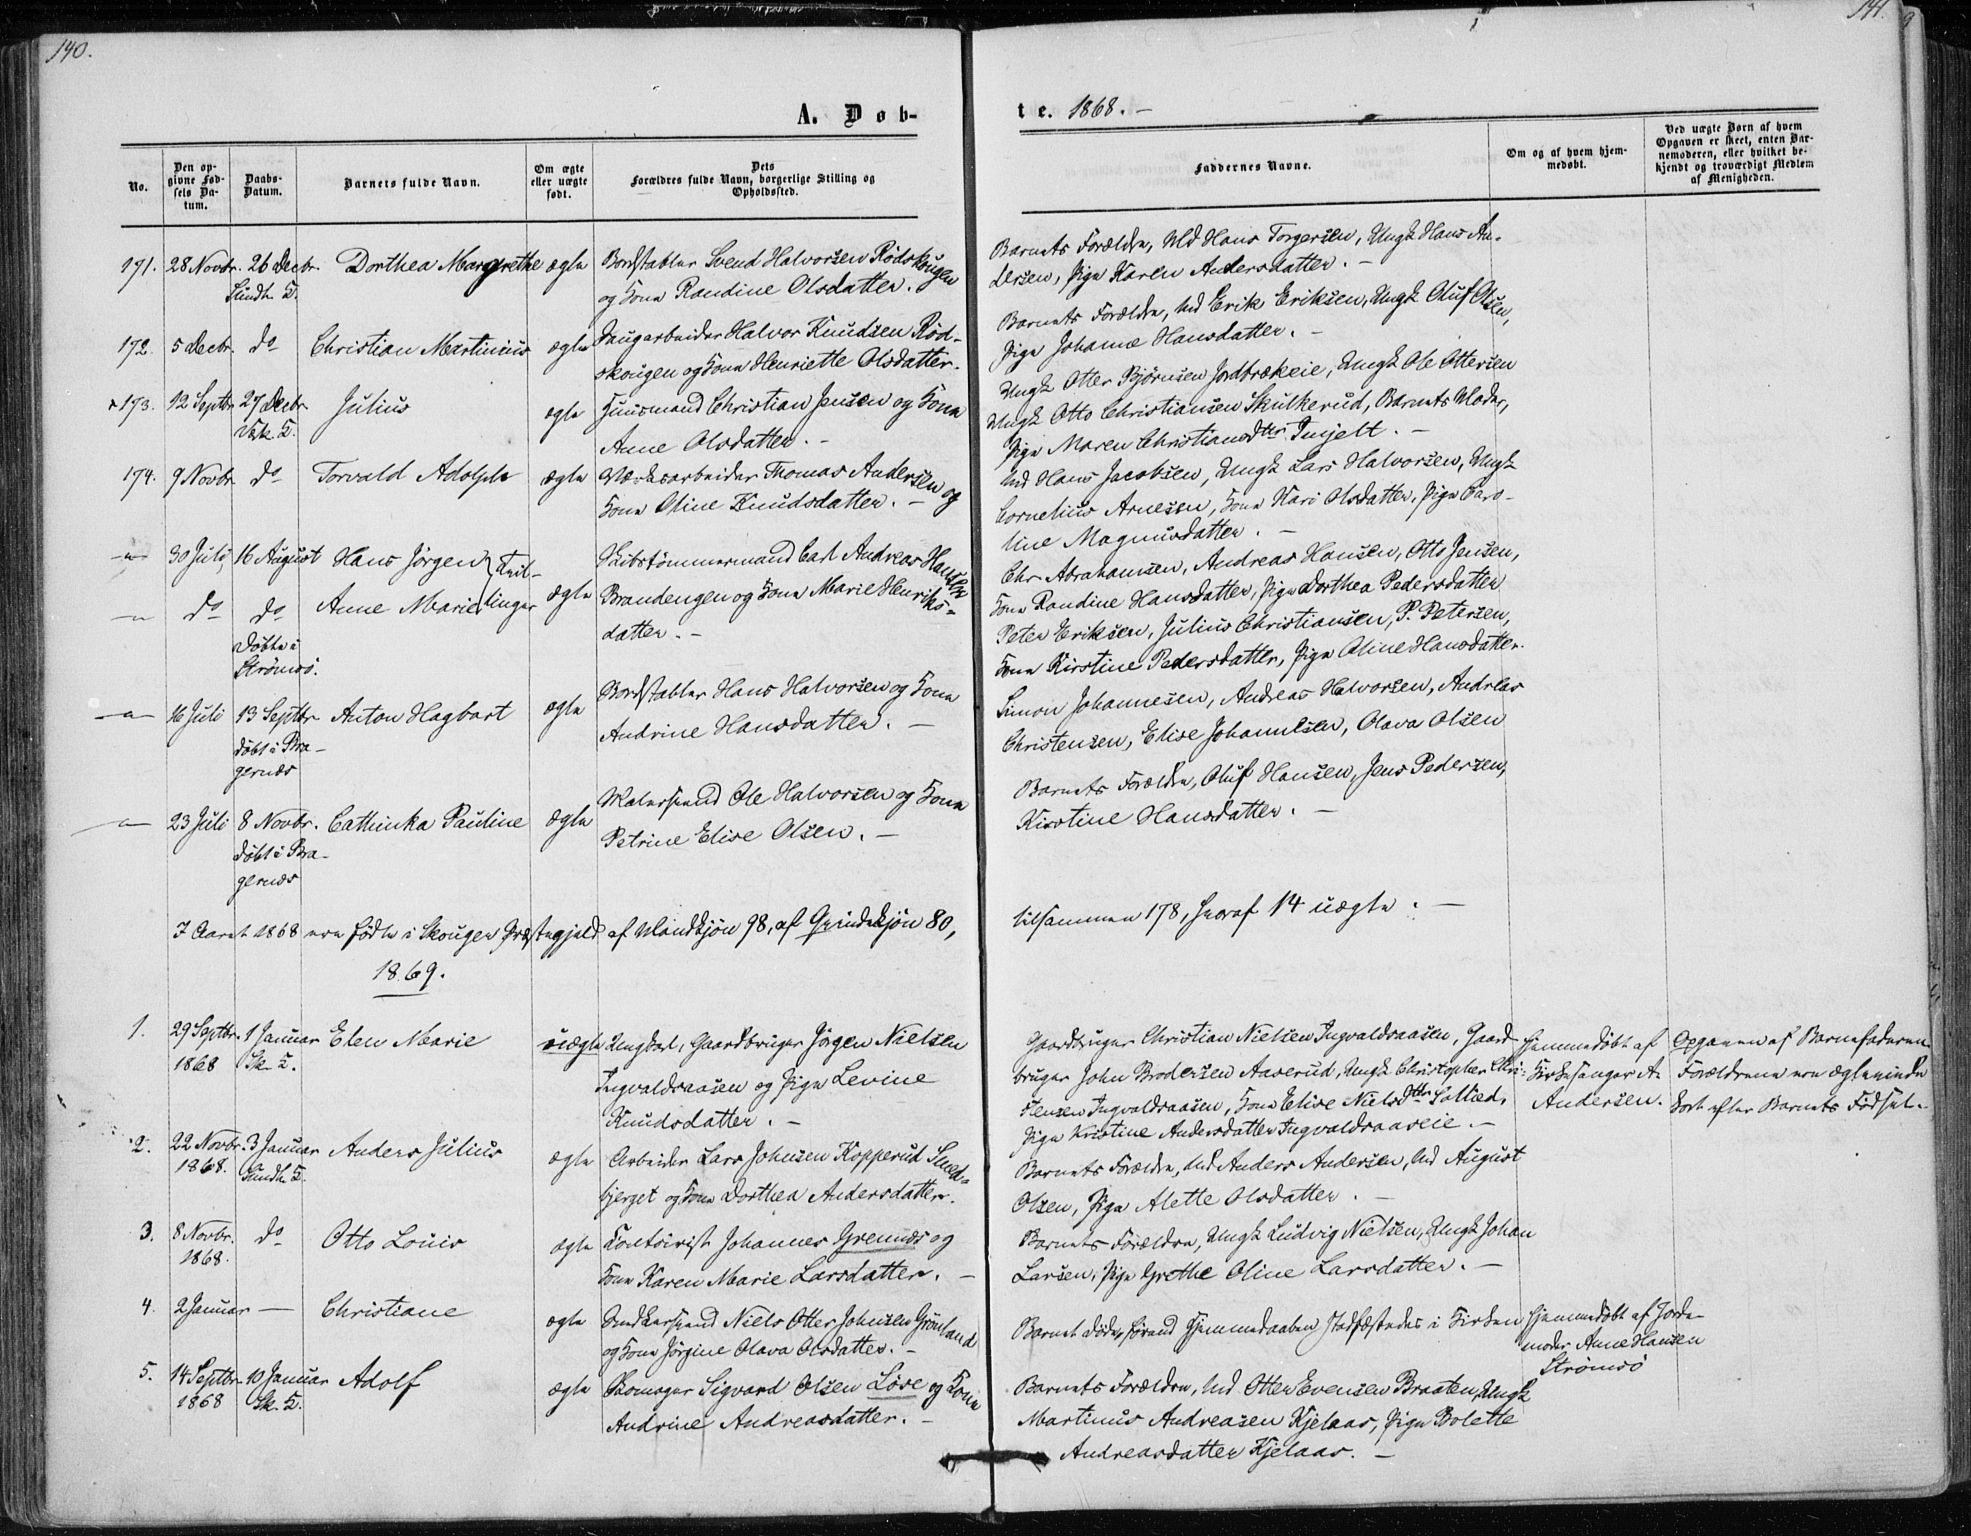 140.
141.
A. Døb-
te. 1868. -
No.
Den op-
givne Fød-
sels Da-
tum.
Daabs-
Datum.
Barnets fulde Navn.
Om ægte
eller uægte
født.
Dets
Forældres fulde Navn, borgerlige Stilling og
Opholdssted.
Faddernes Navne.
Om og af hvem hjem-
medøbt.
Ved uægte Børn af hvem
Opgaven er skeet, enten Bar-
nemoderen, eller hvilket be-
kjendt og troværdigt Medlem
af Menigheden.
171. 28 Novbr. 26 Decbr. Dorthea Margrethe ægte Bordstabler Svend Halvorsen Rødskougen
og Kone Randine Olsdatter.
Barnets Forældre, Md Hans Torgersen, Ungk Hans An-
dersen, Pige Karen Andersdatter. -
172. 5 Decbr. do Christian Martinius ægte Saugarbeider Halvor Knudsen Rød-
skougen og Kone Henriette Olsdatter.
Barnets Forældre, Md Erik Eriksen, Ungk Oluf Olsen,
Pige Johanne Hansdatter. -
173. 12 Septbr 27 Decbr Julius ægte Huusmand Christian Jensen og Kone
Anne Olsdatter. -
Ungk Otter Bjørnsen Jordbrækeie, Ungk Ole Ottersen
Ungk Otto Christiansen Skulkerud, Barnets Moder,
Pige Maren Christiansdtr Injelt. -
174. 9 Novbr. do Torvald Adolph ægte Værksarbeider Thomas Andersen og
Kone Oline Knudsdatter. -
Md Hans Jacobsen, Ungk Lars Halvorsen, Ungk
Cornelius Arnesen, Kone Kari Olsdatter, Pige Caro-
line Magnusdatter. -
30 Juli 16 August Hans Jørgen Tvil-
do do Anne Marie linger ægte Skibstømmermand Carl Andreas Hansen
Brandengen og Kone Marie Henriks-
datter. -
Døbte i
Strømsø.
Chr Abrahamsen, Andreas Hansen, Otto Jensen,
Kone Randine Hansdatter, Pige Dorthea Pedersdatter
Peter Eriksen, Julius Christiansen, P. Petersen,
Kone Kirstine Pedersdatter, Pige Oline Hansdatter.
16 Juli 13 Septbr Anton Hagbart ægte Bordstabler Hans Halvorsen og Kone
Andrine Hansdatter. -
døbt i Bra-
gernæs
Simon Johannesen, Andreas Halvorsen, Andreas
Christensen, Elise Johannesen, Olava Olsen
23 Juli 8 Novbr. Cathinka Pauline ægte Matersvend Ole Halvorsen og Kone
Petrine Elise Olsen. -
døbt i Bra-
gernæs
Barnets Forældre, Oluf Hansen, Jens Pedersen,
Kirstine Hansdatter. -
I Aaret 1868 ere fødte i Skouger Præstegjeld af Mandkjøn 98, af Qvindekjøn 80,
tilsammen 178, hvoraf 14 uægte. -
1869.
1. 29 Septbr. 1 Januar Elen Marie uægte Ungkarl, Gaardbruger Jørgen Nielsen
1868 Sk. K.
Ingvaldsaasen og Pige Levine
Knudsdatter. -
Gaardbruger Christian Nielsen Ingvaldsaasen, Gaard-
bruger John Brodersen Aaserud, Ungk Christopher Chri-
stensen Ingvaldsaasen, Kone Elise Nielsdtr Sollied,
Pige Kristine Andersdatter Ingvaldsaaseie. -
Hjemmedøbt af
Kirkesanger A.
Andersen.
Opgaven af Barnefaderen.
Forældrene ere ægteviede
kort efter Barnets Fødsel.
2. 22 Novbr. 3 Januar Anders Julius ægte Arbeider Lars Johnsen Kopperud Smed-
1868.
bjerget og Kone Dorthea Andersdatter.
Barnets Forældre, Md Anders Andersen, Md August
Olsen, Pige Alette Olsdatter. -
3. 8 Novbr. do Otto Louis ægte Kontoirist Johannes Grennes og
1868.
Kone Karen Marie Larsdatter. -
Barnets Forældre, Ungk Ludvig Nielsen, Ungk Johan
Larsen, Pige Grethe Oline Larsdatter. -
4. 2 Januar - Christiane ægte Snedkersvend Niels Otter Johnsen Grønland
og Kone Jørgine Olava Olsdatter. -
Barnet døde, førend Hjemmedaaben stadfæstedes i Kirken
Hjemmedøbt af Jorde-
moder Anne Hansen
Strømsø
5. 14 Septbr. 10 Januar Adolf ægte Skomager Sigvard Olsen Løve og Kone
1868 Sk. K.
Andrine Andreasdatter. -
Barnets Forældre, Md Otter Evensen Braaten, Ungk
Martinus Andreasen Kjelaas, Pige Bolette
Andreasdatter Kjelaas. -